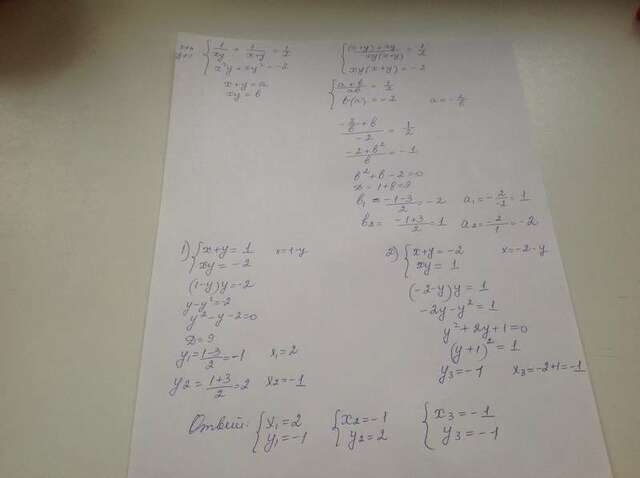 { 1/xy + 1/x+y = 1/2
x²y + xy² = -2
{ (x+y)+xy / xy(x+y) = 1/2
xy(x+y) = -2
x+y = a
xy = b
{ a+b / ab = 1/2
b(a) = -2 a = -2/b
-2/b + b / -2 = 1/2
-2+b² / b = -1
b²+b-2=0
D = 1+8=9
b₁ = -1-3 / 2 = -2 a₁ = -2/-2 = 1
b₂ = -1+3 / 2 = 1 a₂ = -2/1 = -2
1) { x+y = 1 x=1-y
xy = -2
(1-y)y=-2
y-y²=-2
y²-y-2=0
D=9
y₁= 1-3 / 2 = -1 x₁=2
y₂ = 1+3 / 2 = 2 x₂=-1
2) { x+y=-2 x=-2-y
xy = 1
(-2-y)y = 1
-2y-y² = 1
y²+2y+1=0
(y+1)² = 1
y₃=-1 x₃=-2+1=-1
Ответ: { x₁=2 { x₂=-1 { x₃=-1
y₁=-1 y₂=2 y₃=-1